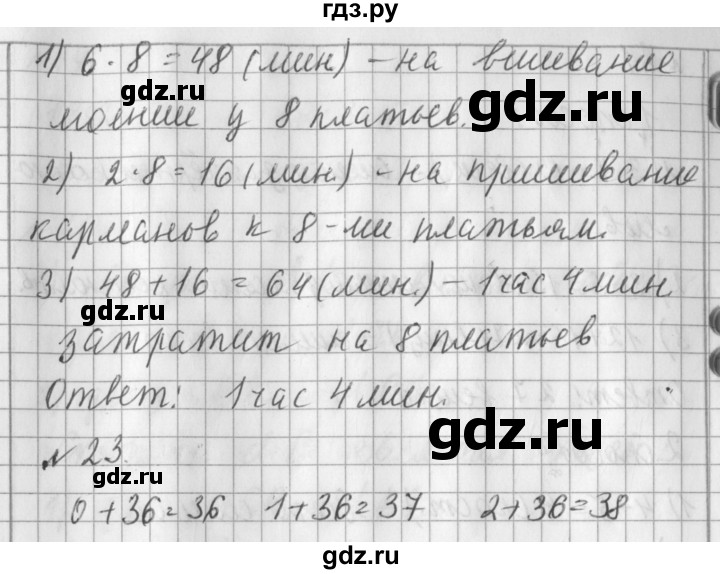 гдз.ру
1) 6 · 8 = 48 (мин) – на вшивание
молнии у 8 платьев.
2) 2 · 8 = 16 (мин.) – на пришивание
карманов к 8-ми платьям.
3) 48 + 16 = 64 (мин.) – 1 час 4 мин
затратит на 8 платьев
Ответ: 1 час 4 мин.
№ 23.
0 + 36 = 36 1 + 36 = 37 2 + 36 = 38
gdz.ru
gdz.ru
gdz.ru
gdz.ru
gdz.ru
gdz.ru
gdz.ru
gdz.ru